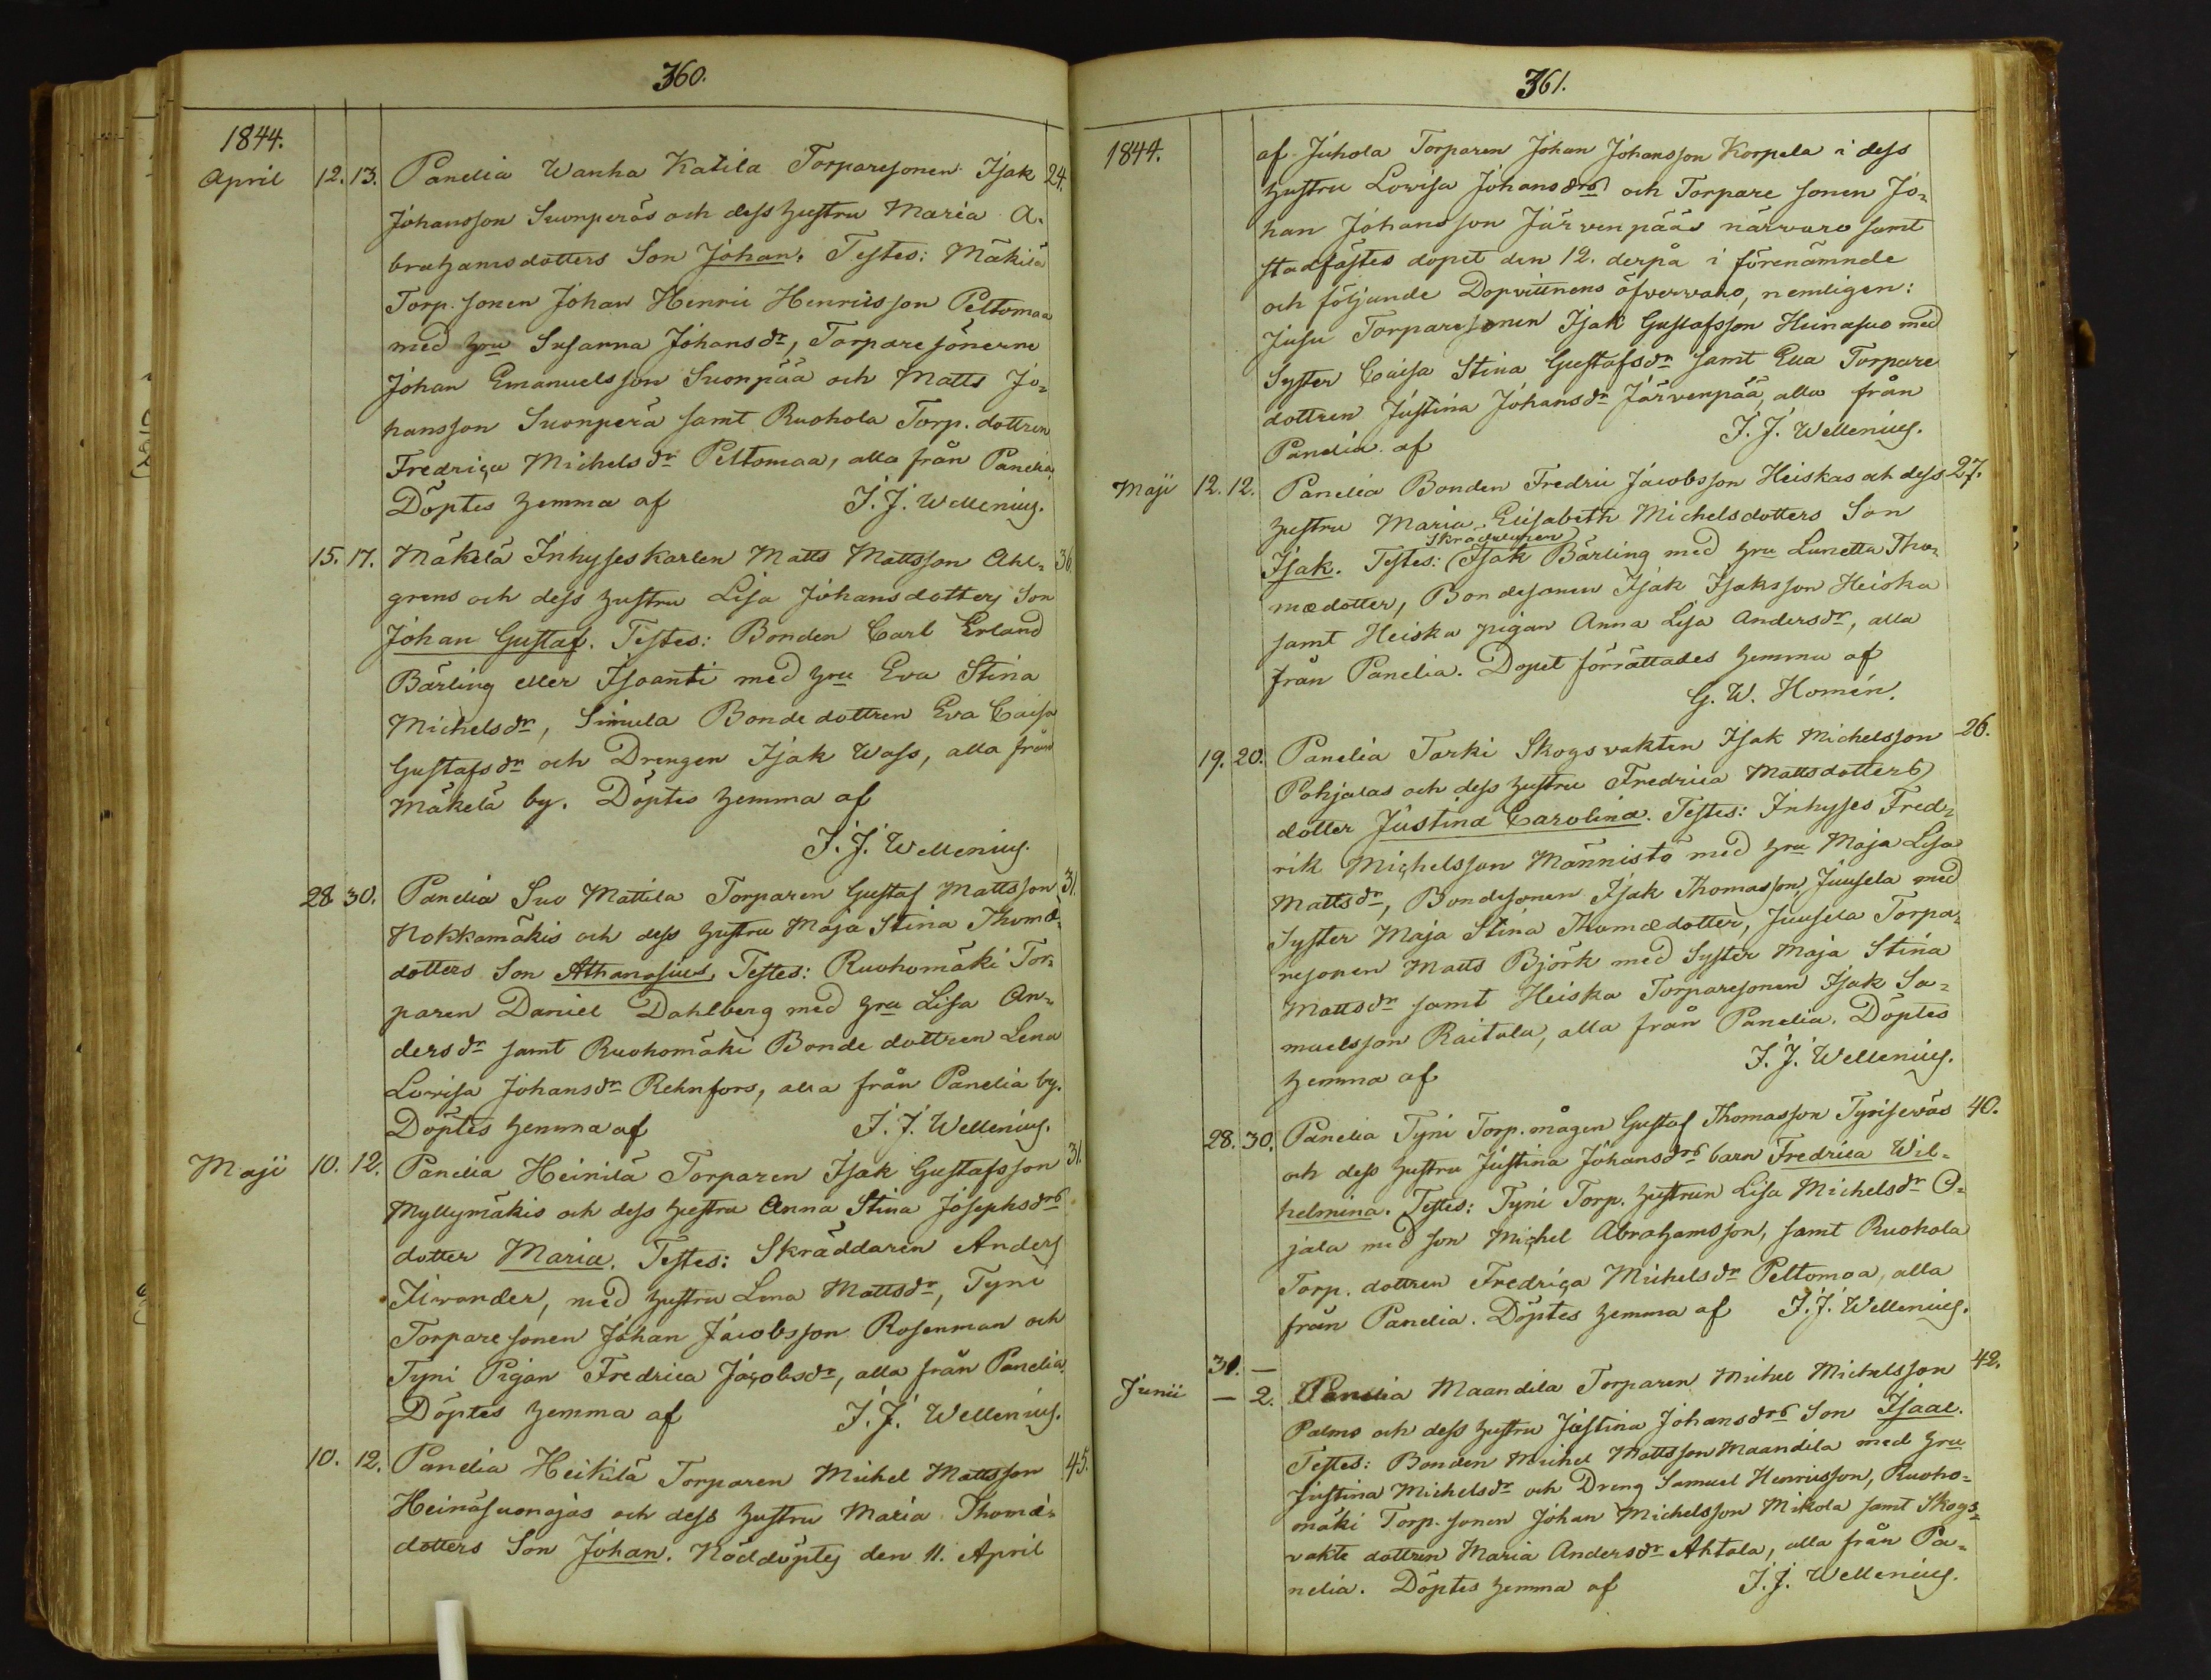 360.
1844.
April 12. 13. Panelia Wanha Katila Torparesonen Isak 24.
Johansson Suonperäs och dess hustru Maria A-
brahamsdotters Son Johan. Testes: Mäkilä
Torp. sonen Johan Henric Henricsson Peltomaa
med hru Susanna Johansdr, Torpare sönerne
Johan Emanuelsson Suonpää och Matts Jo-
hansson Suonperä samt Ruohola Torp. dottren
Fredrica Michelsdr Peltomaa, alla från Panelia,
Döptes hemma af J. J. Wellenius.
15. 17. Mäkelä Inhysseskarlen Matts Mattsson Ahl- 36.
grens och dess hustru Lisa Johansdotters Son
Johan Gustaf. Testes: Bonden Carl Erland
Bärling eller Isoantti med hru Eva Stina
Michelsdr, Simula Bonde dottren Eva Caisa
Gustafsdr och Drengen Isak Wass, alla från
Mäkelä by. Döptes hemma af
J. J. Wellenius.
28 30. Panelia Suo Mattila Torparen Gustaf Mattsson 31.
Nokkamäkis och dess hustru Maja Stina Thomæ-
dotters Son Athanasius, Testes: Ruohomäki Tor-
paren Daniel Dahlberg med hru Lisa An-
dersdr samt Ruohomäki Bonde dottren Lena
Lovisa Johansdr Rehnfors, alla från Panelia by.
Döptes hemma af J. J. Wellenius.
Maji 10. 12. Panelia Heinilä Torparen Isak Gustafsson 31.
Myllymäkis och dess hustru Anna Stina Josephsdrs
dotter Maria. Testes: Skräddaren Anders
med hustru Lena Mattsdr, Tyni
Torpare sonen Johan Jacobsson Rosenman och
Tyni Pigan Fredrica Jacobsdr, alla från Panelia.
Döptes hemma af J. J. Wellenius.
10. 12. Panelia Heikilä Torparen Michel Mattsson 45.
Heinäsuonojas och dess hustru Maria Thomæ-
dotters Son Johan. Nöddöptes den 11. April
361.
1844.
af Juhola Torparen Johan Johansson Korpela i dess
hustru Lovisa Johansdrs och Torpare sonen Jo-
han Johansson Järvenpääs närvaro samt
stadfästes dopet den 12. derpå i förenämnde
och följande Dopvittnens öfvervaro, nemligen:
Jusu Torparesonen Isak Gustafsson Heinasuo med
Syster Caisa Stina Gustafsdr samt Eua Torpare
dottren Justina Johansdr Järvenpää, alla från
Panelia. af J. J. Wellenius.
Maji 12. 12. Panelia Bonden Fredric Jacobsson Heiskas och dess 27.
hustru Maria Elisabeth Michelsdotters Son
Isak. Testes: Isak Bärling med hru Lunetta Tho-
mædotter, Bondesonen Isak Isaksson Heiska
samt Heiska pigan Anna Lisa Andersdr, alla
från Panelia. Dopet förrättades hemma af
G. W. Homén.
19. 20. Panelia Tarki Skogsvakten Isak Michelsson 26.
Pohjalas och dess hustru Fredrica Mattsdotters
dotter Justina Carolina. Testes: Inhyses Fred-
rik Michelsson Männistö med hru Maja Lisa
Mattsdr, Bondesonen Isak Thomasson Juusela med
Syster Maja Stina Thomædotter, Juusela Torpa-
resonen Matts Björk med Syster Maja Stina
Mattsdr samt Heiska Torparesonen Isak Sa-
muelsson Raitala, alla från Panelia. Döptes
hemma af J. J. Wellenius.
28. 30. Panelia Tyni Torp. mågen Gustaf Thomasson 40.
och dess hustru Justina Johansdrs barn Fredrica Wil-
helmina. Testes: Tyni Torp. hustrun Lisa Michelsdr O-
jala med son Michel Abrahamsson, samt Ruohola
Torp. dottren Fredrica Michelsdr Peltomaa, alla
från Panelia. Döptes hemma af J. J. Wellenius.
31. —
Junii — 2. Panelia Maandila Torparen Michel Michelsson 42.
Palms och dess hustru Justina Johansdrs Son Isaac.
Testes: Bonden Michel Mattsson Maandila med hru
Justina Michelsdr och Dreng Samuel Henricsson, Ruoho-
mäki Torp. sonen Johan Michelsson Mikola samt Skogs-
vakte dottren Maria Andersdr Ahtola, alla från Pa-
nelia. Döptes hemma af J. J. Wellenius.